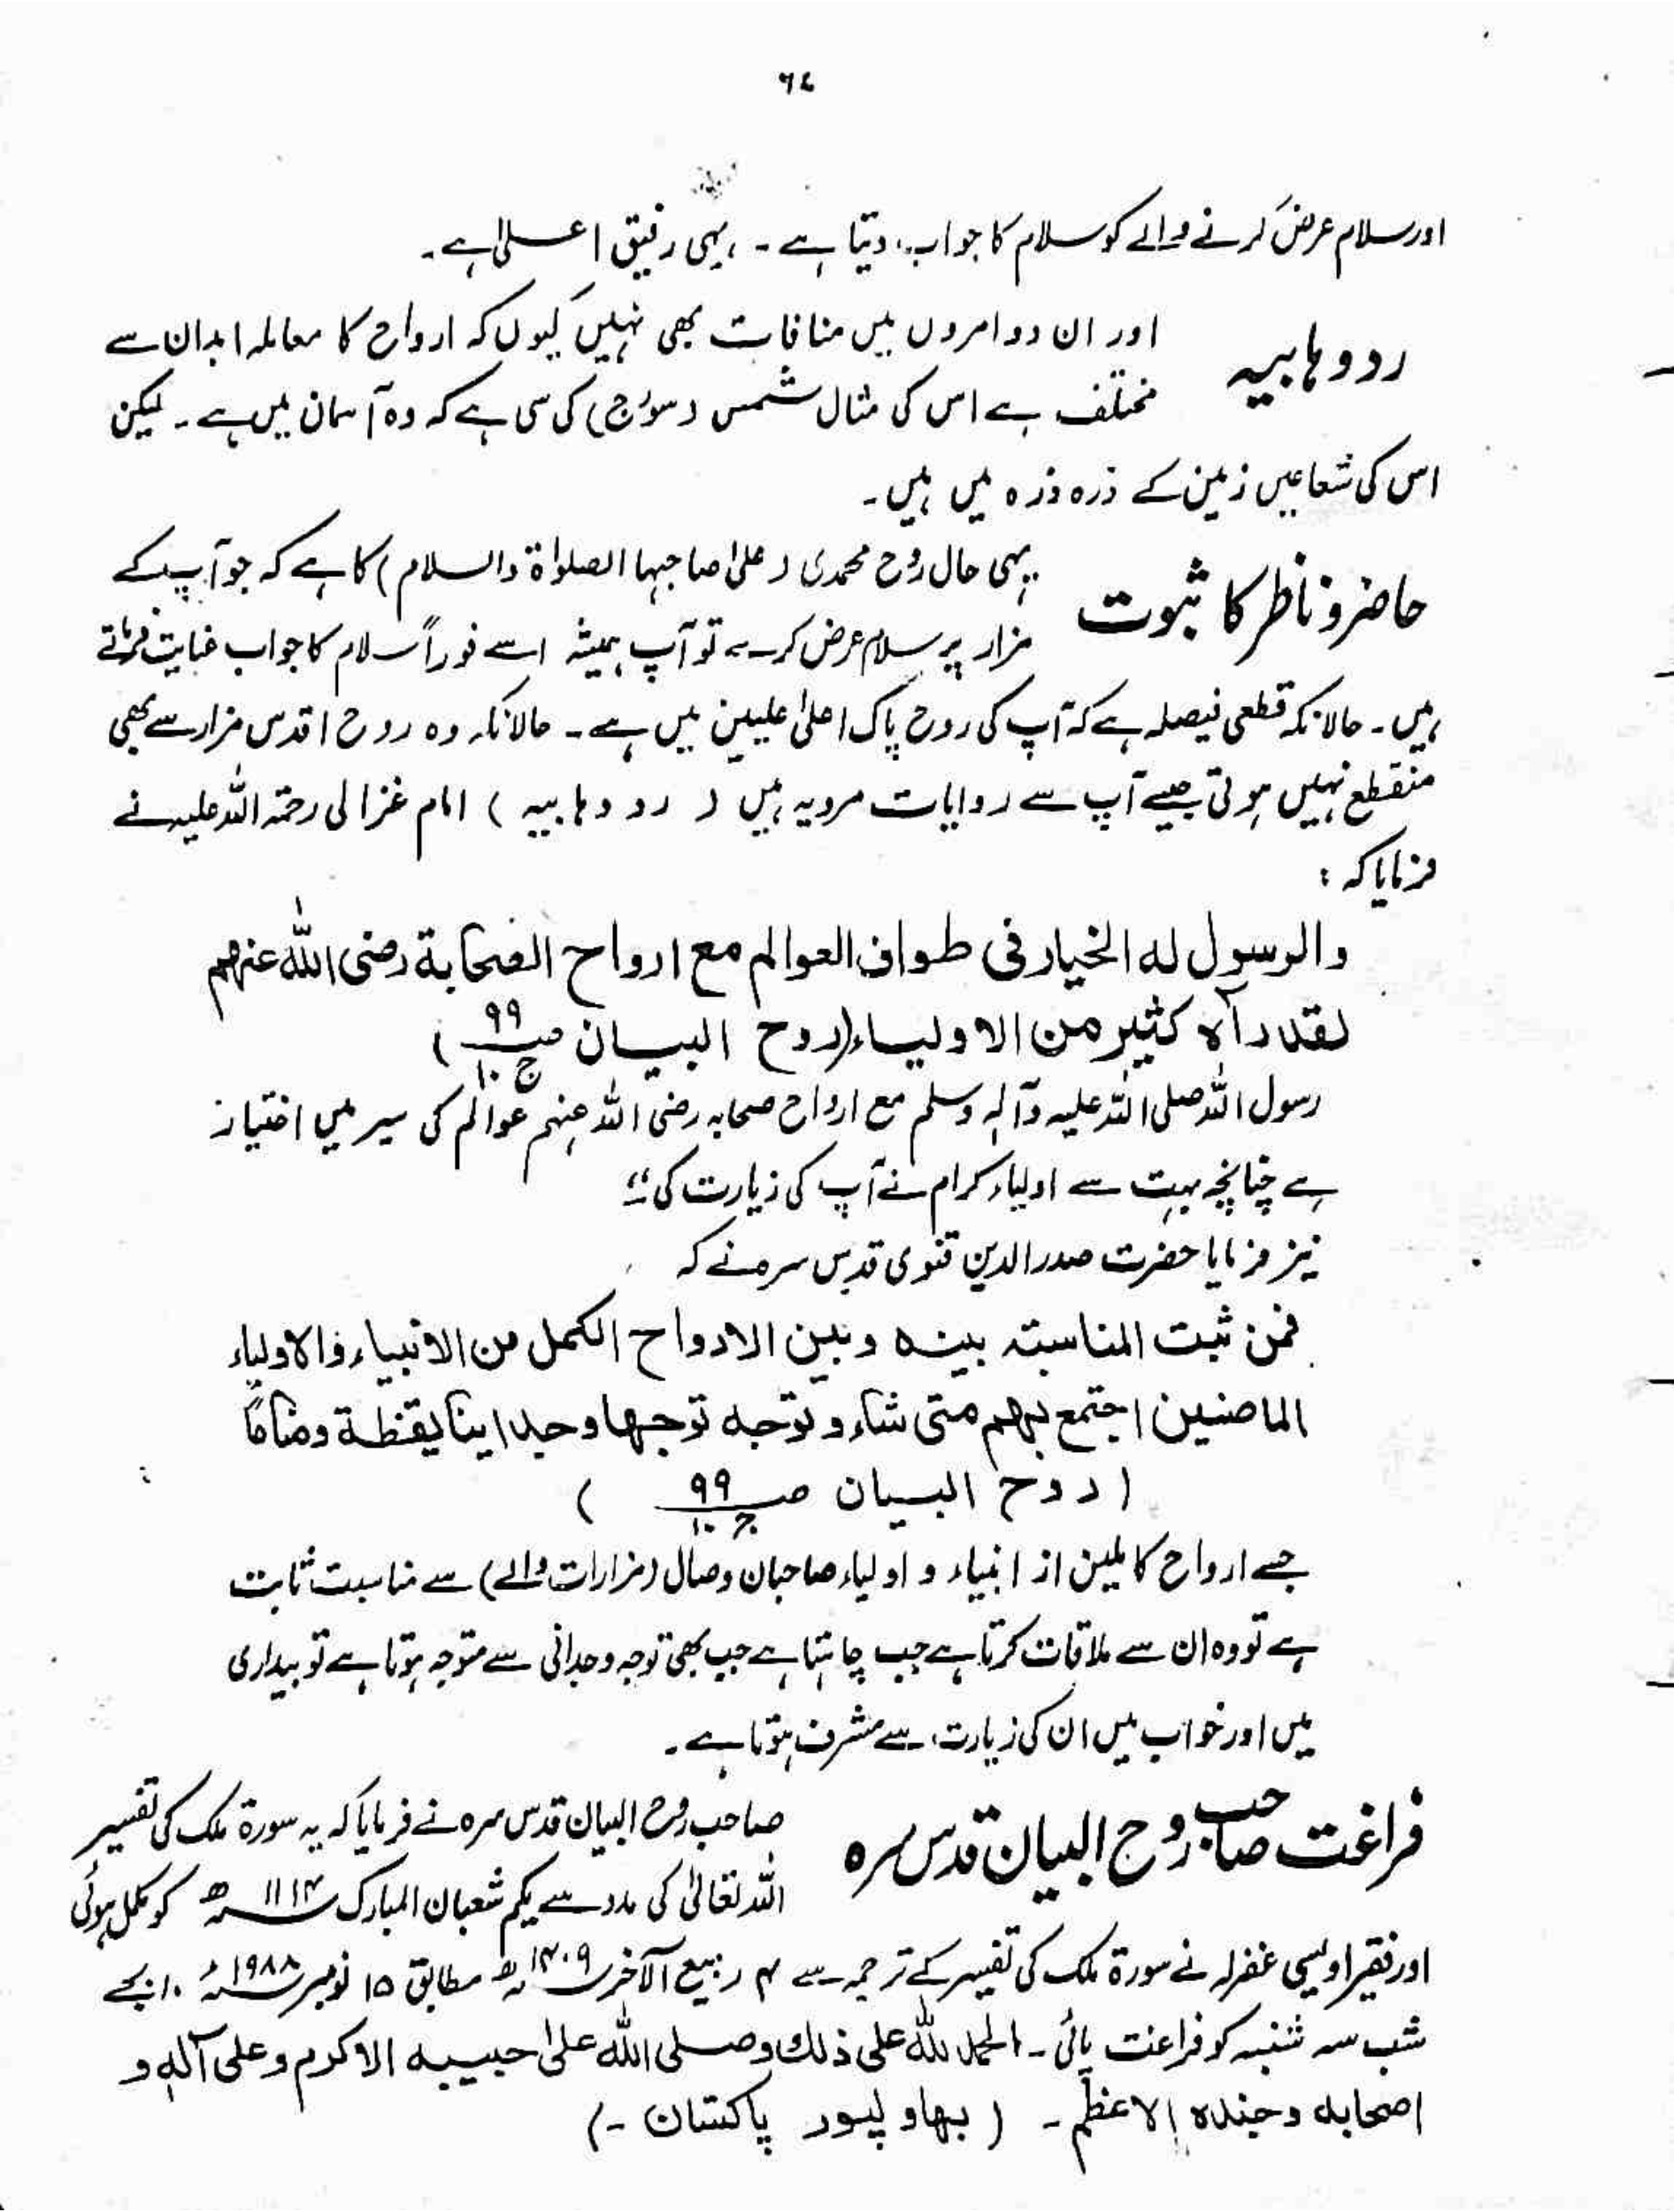 ۶۷
اور سلام عرض کرنے والے کو سلام کا جواب دیتا ہے ۔ یہی رفیق اعلیٰ ہے۔
رد وہابیہ
اور ان دو امروں میں منافات بھی نہیں کیوں کہ ارواح کا معاملہ ابدان سے
مختلف ہے اس کی مثال شمس (سورج) کی سی ہے کہ وہ آسمان میں ہے ۔ لیکن
اس کی شعاعیں زمین کے ذرہ ذرہ میں ہیں۔
حاضر و ناظر کا ثبوت
یہی حال روح محمدی (علیٰ صاحبہا الصلوٰۃ والسلام) کا ہے کہ جو آپ کے
مزار پر سلام عرض کرے تو آپ ہمیشہ اسے فوراً سلام کا جواب عنایت فرماتے
ہیں۔ حالانکہ قطعی فیصلہ ہے کہ آپ کی روح پاک اعلیٰ علیین میں ہے ۔ حالانکہ وہ روح اقدس مزار سے بھی
منقطع نہیں ہوتی جیسے آپ سے روایات مرویہ ہیں ( رد وہابیہ ) امام غزالی رحمۃ اللہ علیہ نے
فرمایا کہ :
والرسول له الخيار فی طواف العوالم مع ارواح الصحابة رضی الله عنهم
لقد رآه كثير من الاولياء (روح البيان ص ۹۹ ج ۱۰ )
رسول اللہ صلی اللہ علیہ وآلہٖ وسلم مع ارواح صحابہ رضی اللہ عنہم عوالم کی سیر میں اختیار
ہے چنانچہ بہت سے اولیاء کرام نے آپ کی زیارت کی ؛؛
نیز فرمایا حضرت صدر الدین قنوی قدس سرہ نے کہ
فمن ثبت المناسبتہ بينه وبين الارواح الكمل من الانبياء والاولياء
الماضين اجتمع بهم متى شاء و توجه توجها وحدانيا يقظة ومناماً
( روح البيان ص ۹۹ ج ۱۰ )
جسے ارواح کاملین از انبیاء و اولیاء صاحبان وصال (مزارات والے) سے مناسبت ثابت
ہے تو وہ ان سے ملاقات کرتا ہے جب چاہتا ہے جب بھی توجہ وحدانی سے متوجہ ہوتا ہے تو بیداری
میں اور خواب میں ان کی زیارت سے مشرف ہوتا ہے ۔
فراغت صاحب روح البیان قدس سرہ
صاحب روح البیان قدس سرہ نے فرمایا کہ یہ سورۃ ملک کی تفسیر
اللہ تعالیٰ کی مدد سے یکم شعبان المبارک ۱۱۱۴ھ کو مکمل ہوئی
اور فقیر اویسی غفرلہ نے سورۃ ملک کی تفسیر کے ترجمہ سے ۴ ربیع الآخر ۱۴۰۹ھ مطابق ۱۵ نومبر ۱۹۸۸ء ۱۰ بجے
شب سہ شنبہ کو فراغت پائی ۔ الحمد لله على ذلك وصلی الله علیٰ حبيبه الاكرم وعلى آلہٖ و
اصحابه وجنده الاعظم ۔ ( بہاولپور پاکستان ۔)